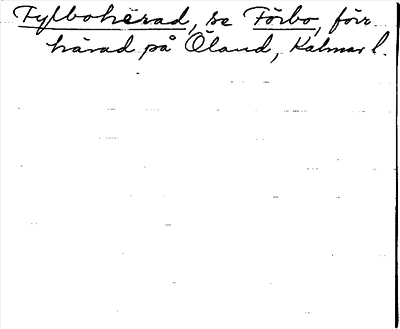 Fylbohärad, se Förbo, förr
härad på Öland, Kalmar l.